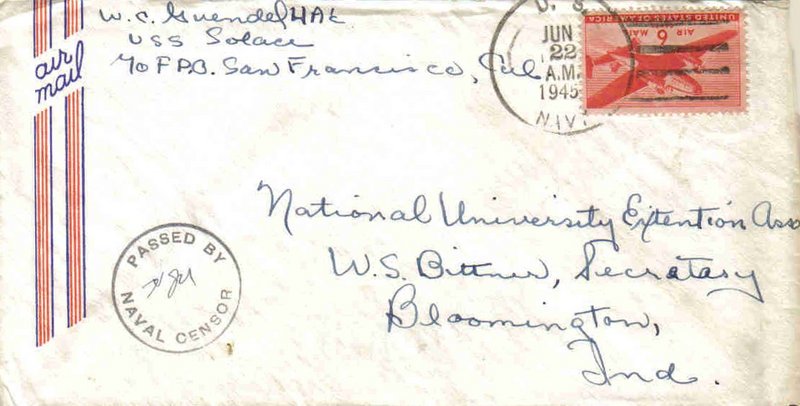 W. C. Guendel HA1
USS Solace
c/o F.P.O. San Francisco, Cal
air
mail
U. S.
JUN
22
A.M.
1945
NAVY
UNITED STATES OF AMERICA
AIR 6¢ MAIL
National University Extention Asso
W. S. Bittner, Secratary
Bloomington,
Ind.
PASSED BY
NAVAL CENSOR